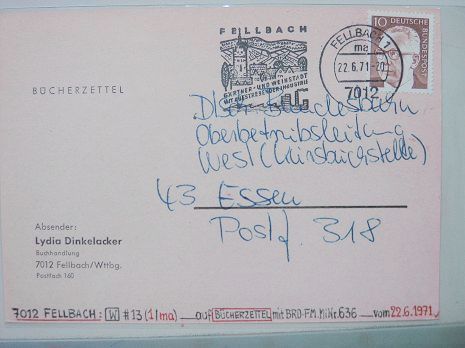 FELLBACH
GÄRTNER- UND WEINSTADT
MIT AUFSTREBENDER INDUSTRIE
FELLBACH 1
ma
22.6.71-20
7012
10 DEUTSCHE BUNDESPOST
BÜCHERZETTEL
Deutsche Bundesbahn
Oberbetriebsleitung
West (Kursbuchstelle)
43 Essen
Postf. 318
Absender:
Lydia Dinkelacker
Buchhandlung
7012 Fellbach/Wttbg.
Postfach 160
7012 FELLBACH: W #13 (1/ma) — auf BÜCHERZETTEL mit BRD-FM. Mi.Nr. 636 — vom 22.6.1971